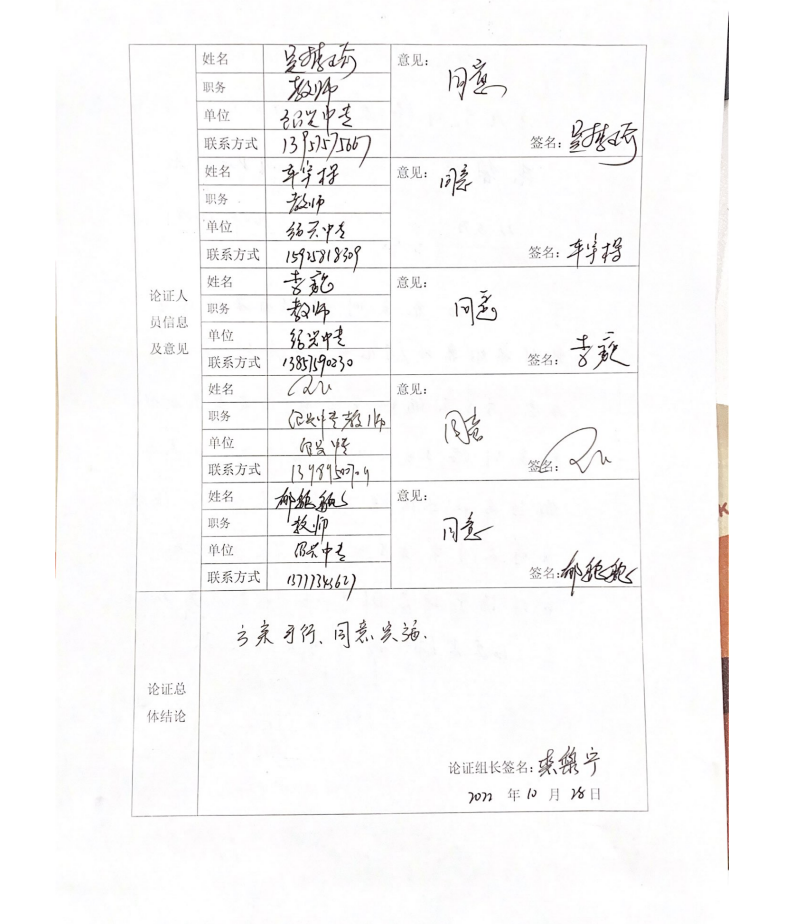 姓名
意见:
同意
职务 教师
单位 绍兴中专
联系方式 13957575667
签名:
姓名 车宇探
意见:
同意
职务 教师
单位 绍兴中专
联系方式 15925818309
签名: 车宇探
姓名 李巍
意见:
同意
职务 教师
单位 绍兴中专
联系方式 13857590230
签名: 李巍
论证人
员信息
及意见
姓名
意见:
同意
职务 绍兴中专教师
单位 绍兴中专
联系方式
签名:
姓名
意见:
同意
职务 教师
单位 绍兴中专
联系方式 13777343627
签名:
方案可行、同意实施.
论证总
体结论
论证组长签名:
2022 年 10 月 28 日